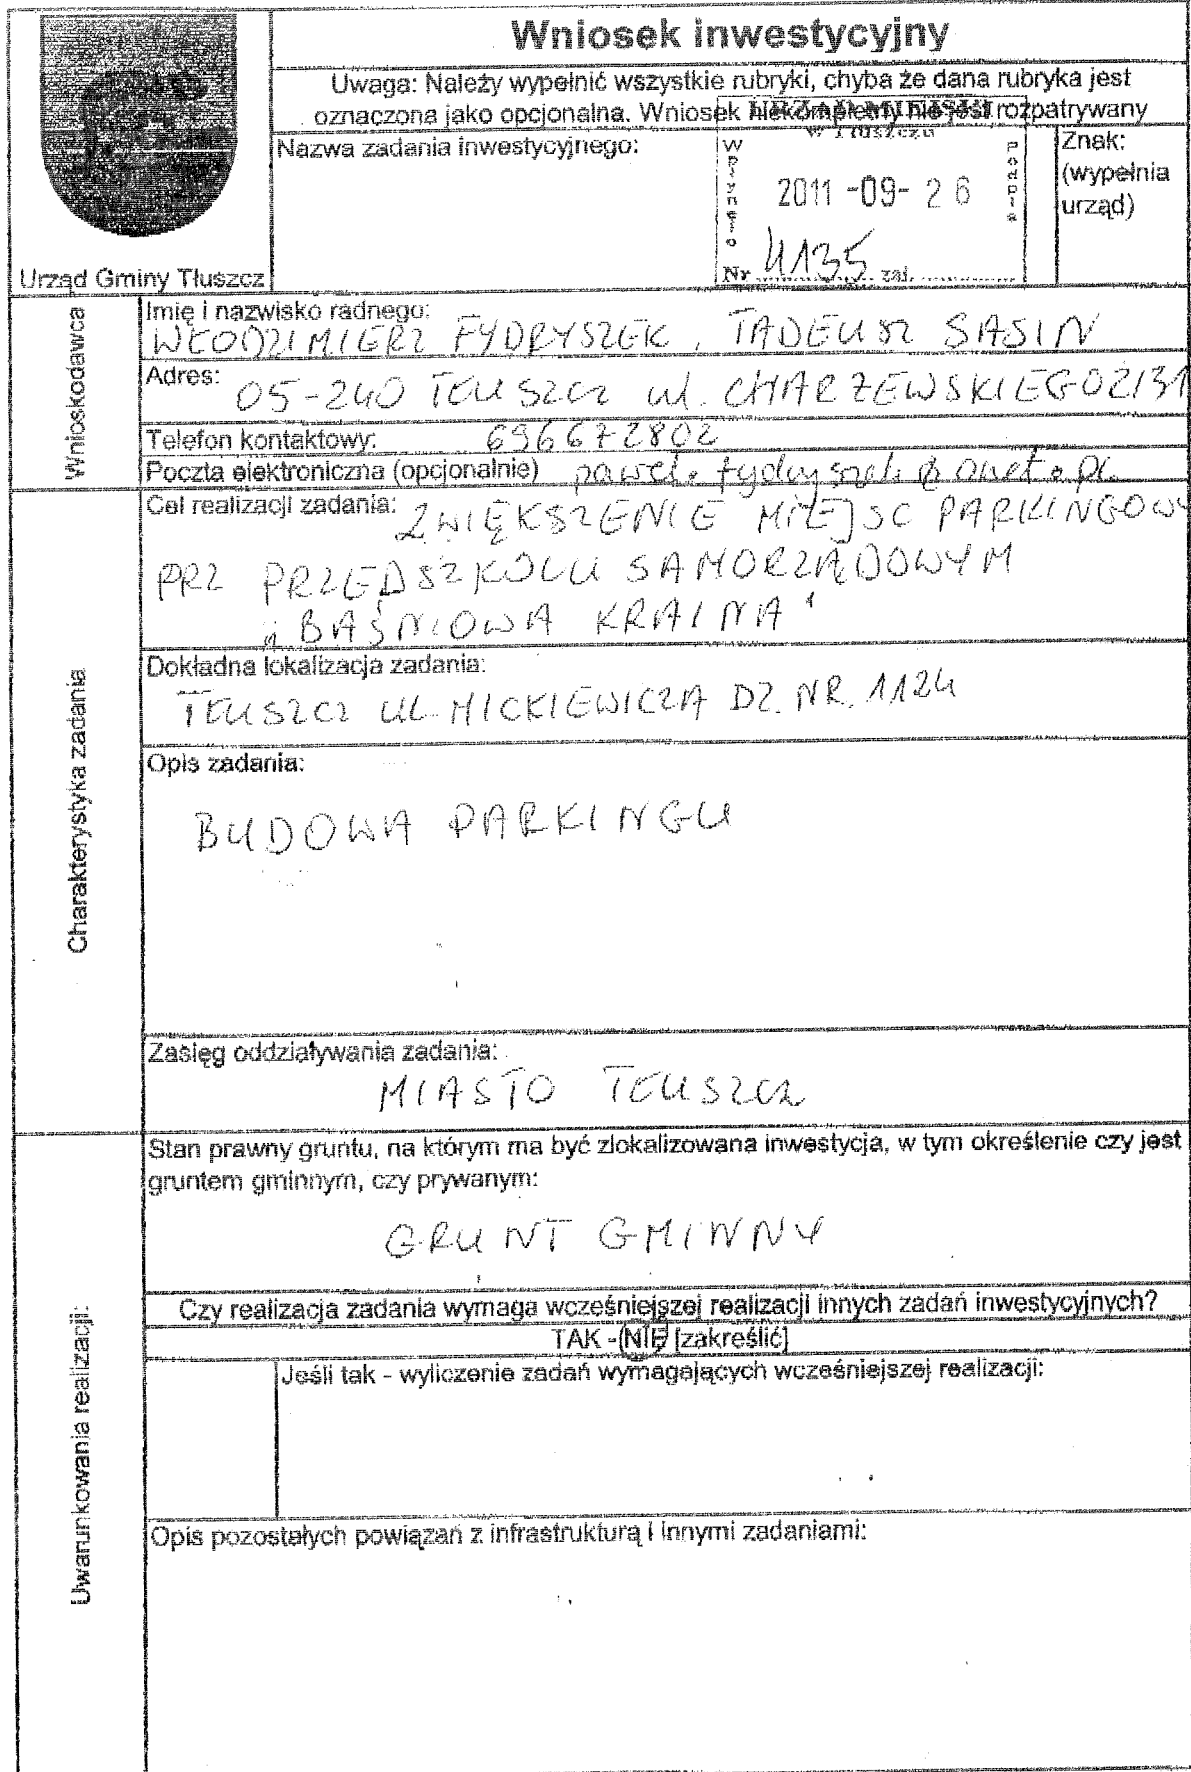 Wniosek inwestycyjny
Uwaga: Należy wypełnić wszystkie rubryki, chyba że dana rubryka jest
oznaczona jako opcjonalna. Wniosek niekompletny nie jest rozpatrywany
URZĄD MIEJSKI
w Tłuszczu
Nazwa zadania inwestycyjnego:
Wpłynęło
2011 -09- 26
Podpis
Nr 4135 zał.
Znak:
(wypełnia
urząd)
Urząd Gminy Tłuszcz
Wnioskodawca
Imię i nazwisko radnego:
WŁODZIMIERZ FYDRYSZEK, TADEUSZ SASIN
Adres: 05-240 TŁUSZCZ ul. CHARZEWSKIEGO 2/31
Telefon kontaktowy: 696672802
Poczta elektroniczna (opcjonalnie) pawel.fydryszek@onet.pl
Charakterystyka zadania
Cel realizacji zadania: ZWIĘKSZENIE MIEJSC PARKINGOW
PRZ PRZEDSZKOLU SAMORZĄDOWYM
„BAŚNIOWA KRAINA"
Dokładna lokalizacja zadania:
TŁUSZCZ UL. MICKIEWICZA DZ. NR. 1124
Opis zadania:
BUDOWA PARKINGU
Zasięg oddziaływania zadania:
MIASTO TŁUSZCZ
Uwarunkowania realizacji:
Stan prawny gruntu, na którym ma być zlokalizowana inwestycja, w tym określenie czy jest
gruntem gminnym, czy prywanym:
GRUNT GMINNY
Czy realizacja zadania wymaga wcześniejszej realizacji innych zadań inwestycyjnych?
TAK - NIE [zakreślić]
Jeśli tak - wyliczenie zadań wymagających wcześniejszej realizacji:
Opis pozostałych powiązań z infrastrukturą i innymi zadaniami: